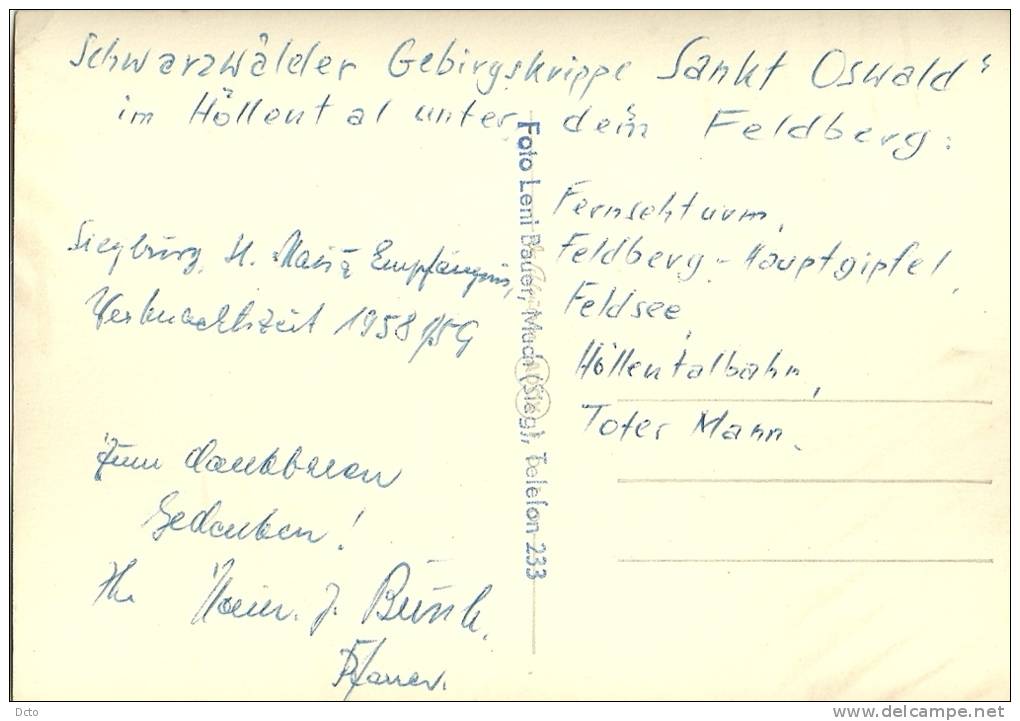 Schwarzwälder Gebirgskrippe Sankt Oswald
im Höllental unter dem Feldberg:
Fernsehturm,
Feldberg-Hauptgipfel,
Feldsee,
Höllentalbahn,
Toter Mann.
Siegburg, St. Mariä Empfängnis,
Weihnachtszeit 1958/59
Zum dankbaren
Gedenken!
Ihr J.
Pfarrer.
Foto Leni Bauer, Much (Sieg), Telefon 233
Dcto
http://www.delcampe.net